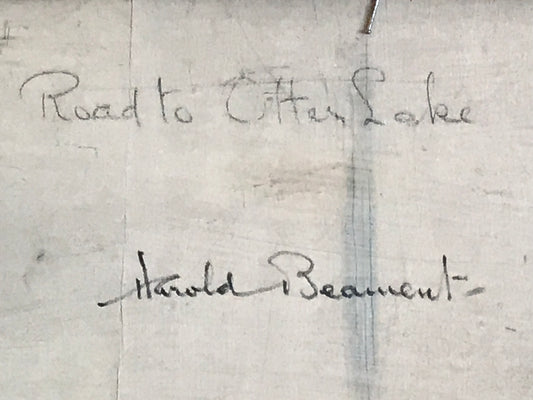 Road to Otter Lake
Harold Beament